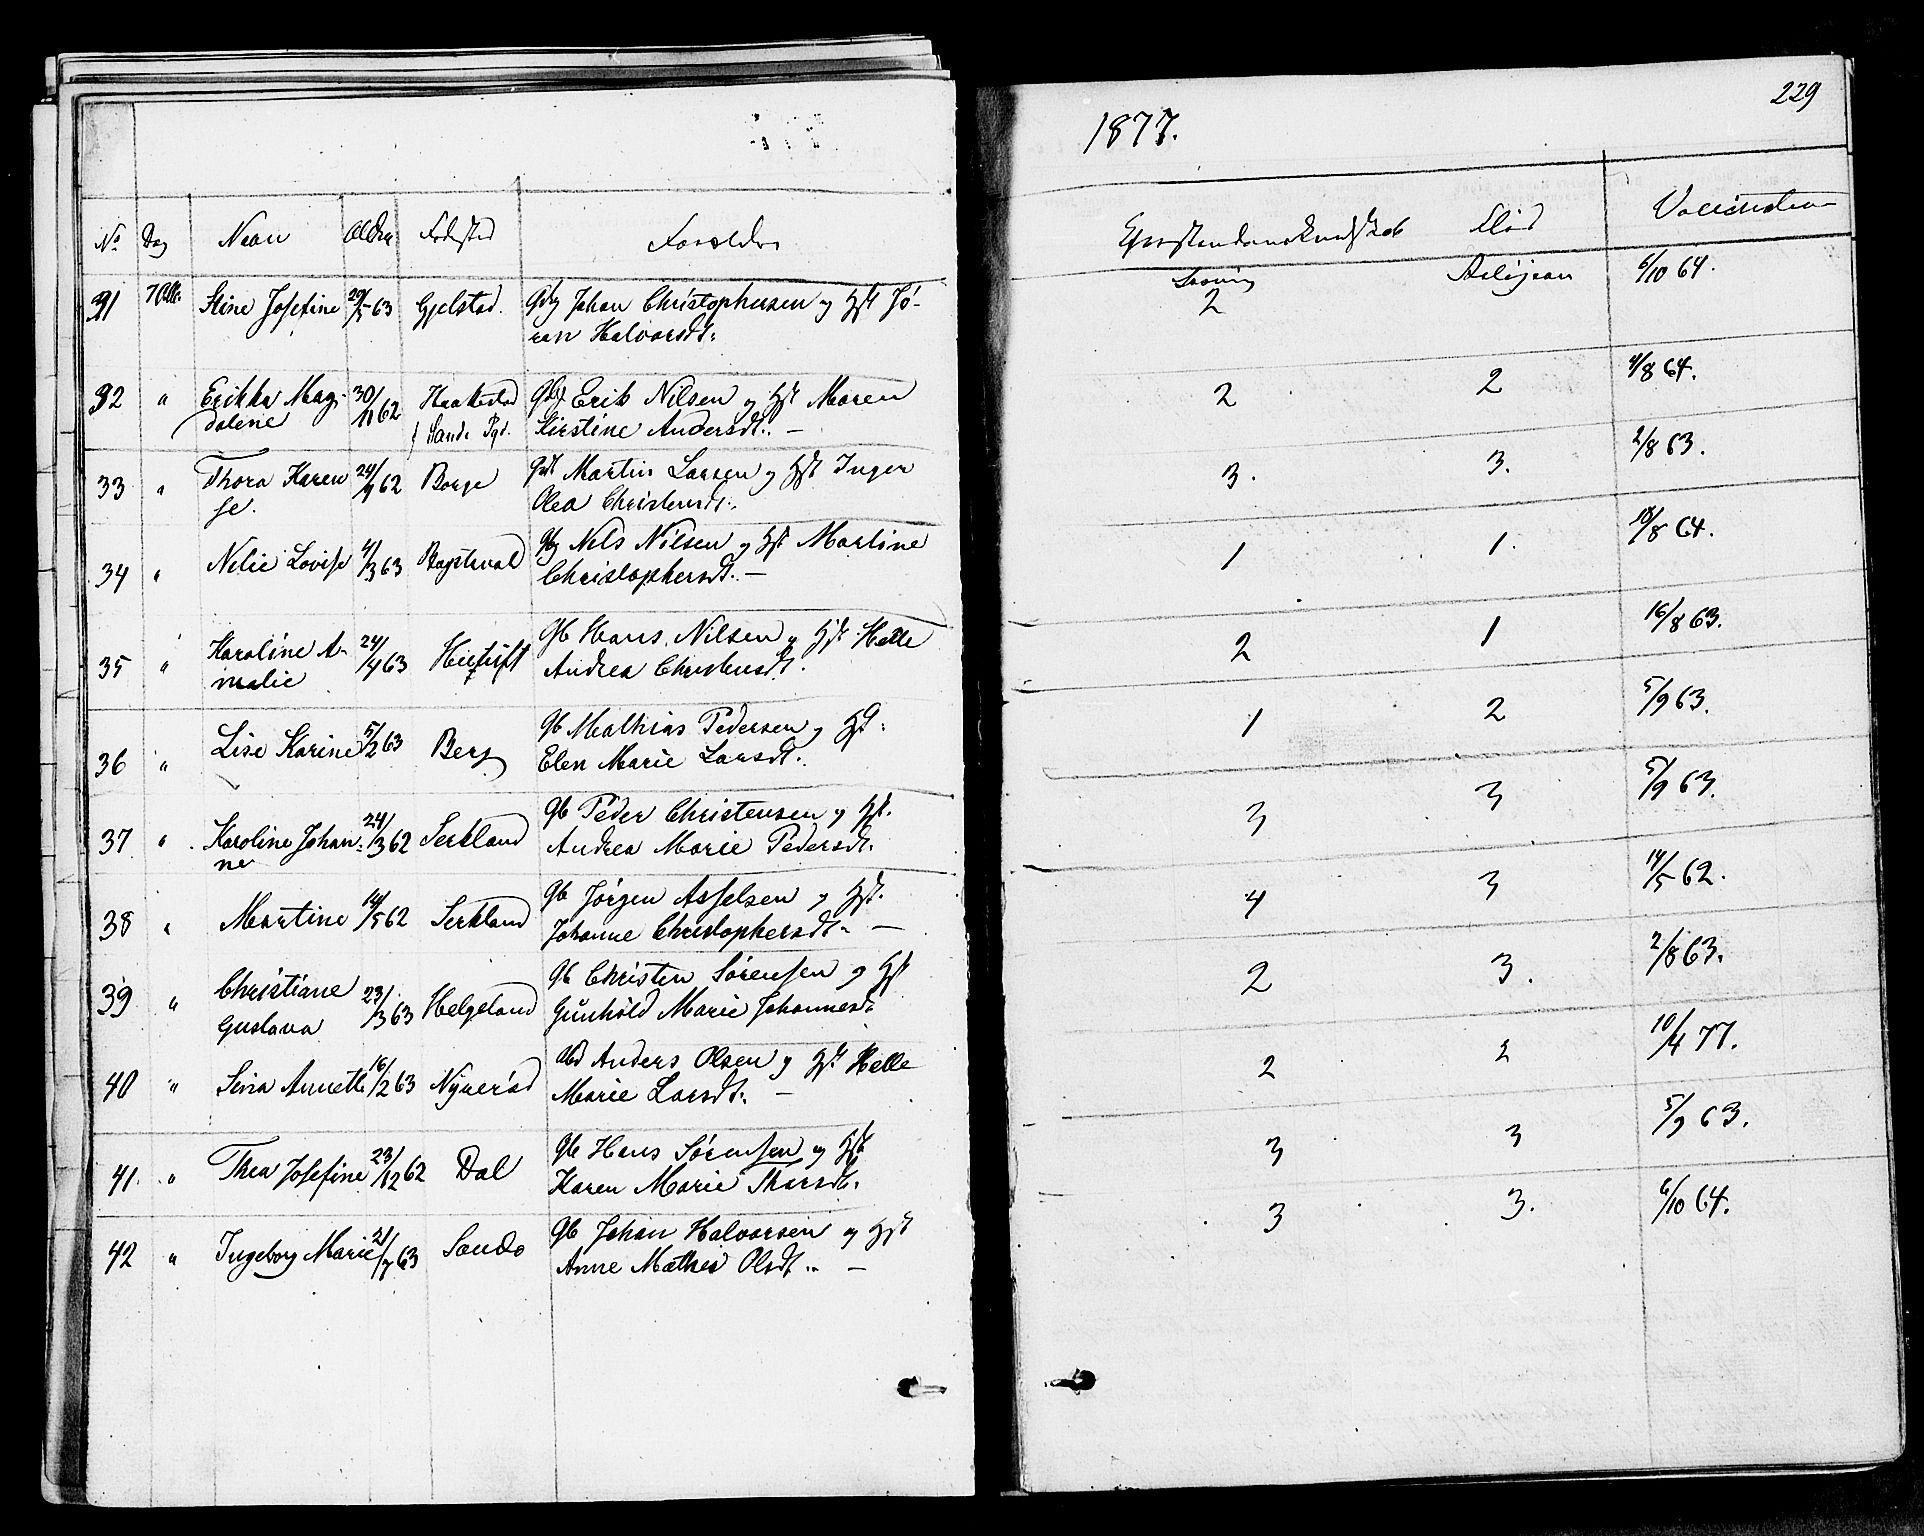 229
1877.
No Dag Navn Alder Fødested Forældre
31 7 Octbr Stine Josefine 29/5 63 Gjelstad. Gbr Johan Christophersen og Hst Jø-
ran Halvorsdt.
32 " Erikka Mag- 30/11 62 Haakestad Gbr Erik Nilsen og Hst Maren
dalene Sande Pgd. Kirstine Andersdt. —
33 " Thora Karen 24/9 62 Borge Martin Larsen og Hst Inger
se. Olea Christensdt.
34 " Nelie Lovise 4/3 63 Nils Nilsen og Hst Martine
Christophersdt. —
35 " Karoline A- 24/4 63 Gb Hans Nilsen og Hst Helle
malie Andrea Christensdt.
36 " Lise Karine 5/2 63 Berg Gb Mathias Pedersen og Hst
Elen Marie Larsdt.
37 " Karoline Johan- 24/3 62 Serkland Gb Peder Christensen og Hst.
ne Andrea Marie Pedersdt.
38 " Martine 14/5 62 Serkland Gb Jørgen Asselsen og Hst.
Johanne Christophersdt. —
39 " Christiane 23/3 63 Helgeland Gb Christen Sørensen og Hst
Gustava Gunhild Marie Johannesdt
40 " Sina Annette 16/2 63 Anders Olsen og Hst Helle
Marie Larsdt. —
41. " Thea Josefine 23/12 62 Dal Gb Hans Sørensen og Hst
Karen Marie Thorsdt.
42 " Ingeborg Marie 21/7 63 Sande Gb Johan Halvorsen og Hst
Anne Mathea Olsdt. —
Christendomskundskab Flid Vaccination
2 6/10 64.
2 2 4/8 64.
3. 3. 2/8 63.
1 1. 18/8 64.
2 1 16/8 63.
1 2 5/9 63.
3 3 5/9 63.
4 3 14/5 62.
2 3. 2/8 63.
2 2 10/4 77.
3 3 5/9 63.
3 3. 6/10 64.